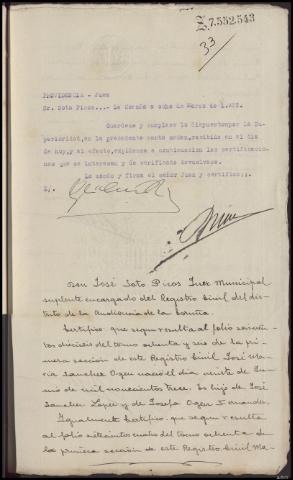 Z.7.552.543
33
PROVIDENCIA - Juez
Sr. Soto Picos.- La Coruña a ocho de Marzo de 1.937.
Guárdese y cúmplase lo dispuesto por la Su-
perioridad, en la precedente carta orden, recibida en el día
de hoy, y al efecto, expídanse a continuación las certificacio-
nes que se interesan y de verificado devuélvase.
Lo mandó y firma el señor Juez y certifico;.
E/.
Don José Soto Picos Juez Municipal
suplente encargado del Registro Civil del dis-
trito de la Audiencia de La Coruña.
Certifico: que segun resulta al folio
del tomo ochenta y seis de la pri-
mera sección de este Registro Civil José Ma-
ría Sanchez Oger nació el día veinte de
de mil novecientos trece. Es hijo de José
Sanchez Lopez y de Josefa Oger Fernandez.
Igualmente certifico: que segun resulta
al folio setecientos cuatro del tomo ochenta de
la primera sección de este Registro Civil Ma-